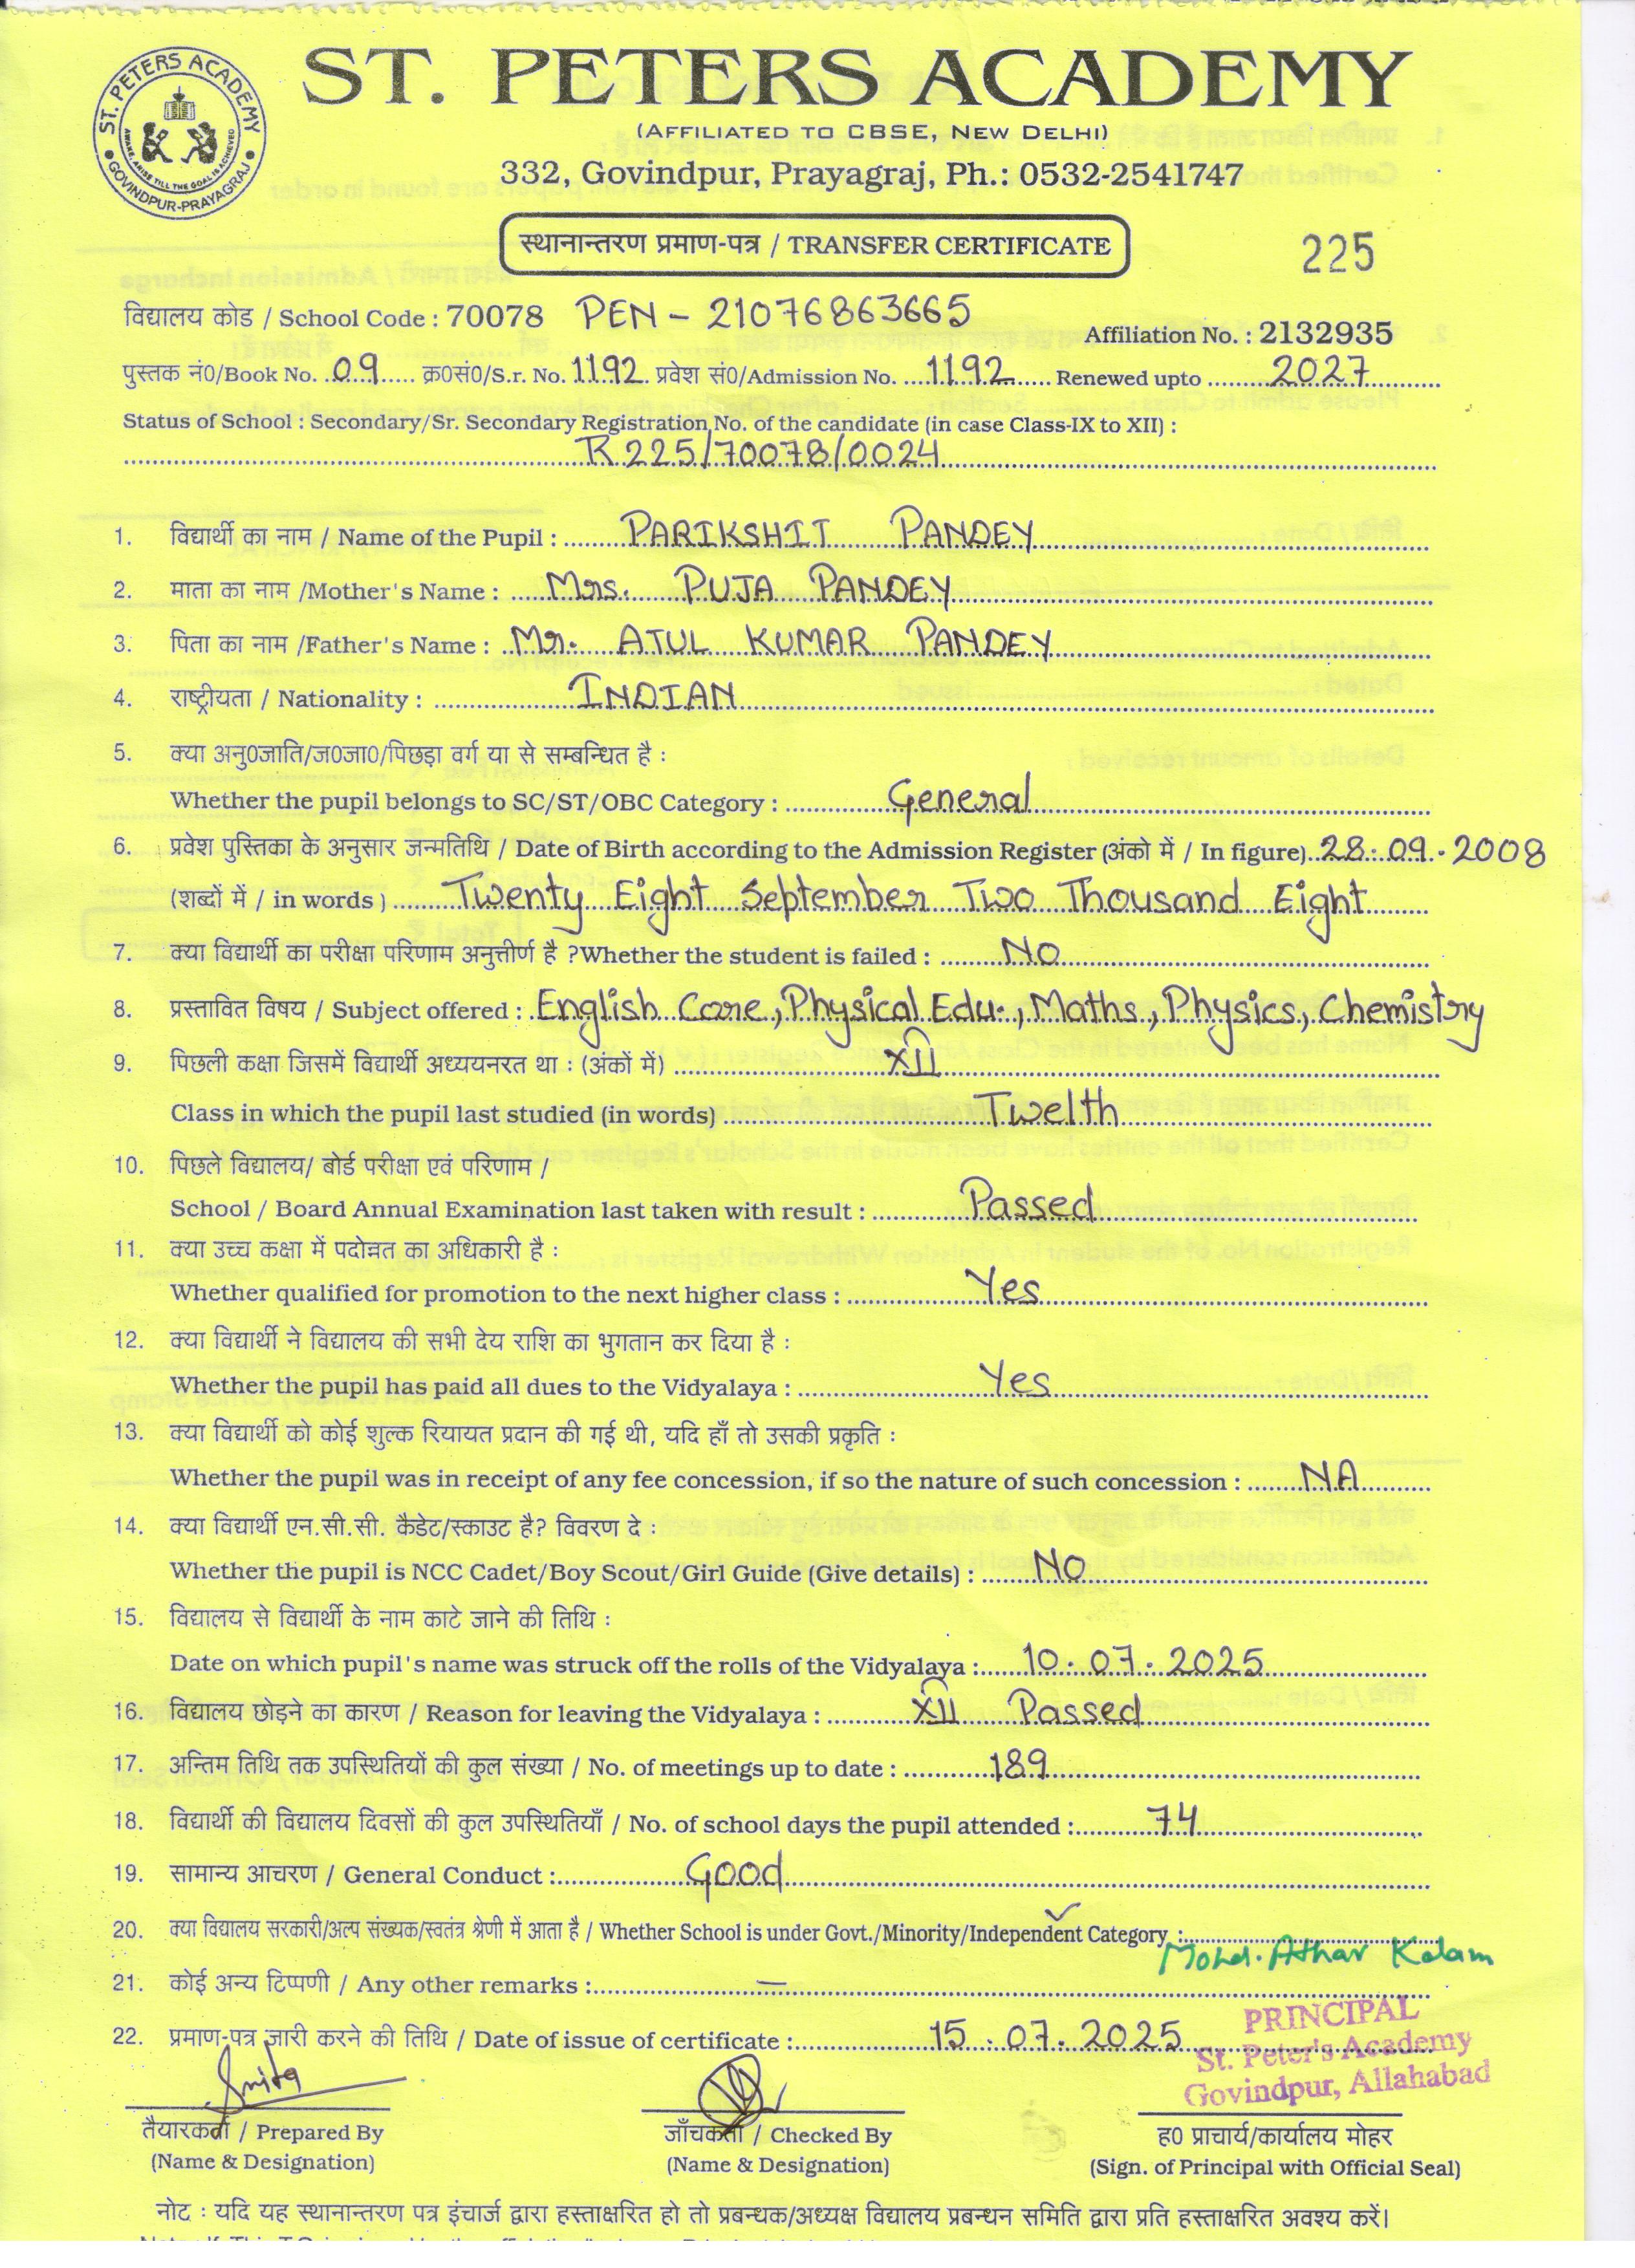 ST. PETERS ACADEMY
GOVINDPUR-PRAYAGRAJ
AWAKE, ARISE TILL THE GOAL IS ACHIEVED
ST. PETERS ACADEMY
(AFFILIATED TO CBSE, NEW DELHI)
332, Govindpur, Prayagraj, Ph.: 0532-2541747
स्थानान्तरण प्रमाण-पत्र / TRANSFER CERTIFICATE
225
विद्यालय कोड / School Code : 70078 PEN - 21076863665
Affiliation No. : 2132935
पुस्तक नं0/Book No. 09 क्र0सं0/S.r. No. 1192 प्रवेश सं0/Admission No. 1192 Renewed upto 2027
Status of School : Secondary/Sr. Secondary Registration No. of the candidate (in case Class-IX to XII) :
R225/70078/0024
1. विद्यार्थी का नाम / Name of the Pupil : PARIKSHIT PANDEY
2. माता का नाम /Mother's Name : Mrs. PUJA PANDEY
3. पिता का नाम /Father's Name : Mr. ATUL KUMAR PANDEY
4. राष्ट्रीयता / Nationality : INDIAN
5. क्या अनु0जाति/ज0जा0/पिछड़ा वर्ग या से सम्बन्धित है :
Whether the pupil belongs to SC/ST/OBC Category : General
6. प्रवेश पुस्तिका के अनुसार जन्मतिथि / Date of Birth according to the Admission Register (अंको में / In figure) 28.09.2008
(शब्दों में / in words ) Twenty Eight September Two Thousand Eight
7. क्या विद्यार्थी का परीक्षा परिणाम अनुत्तीर्ण है ?Whether the student is failed : NO
8. प्रस्तावित विषय / Subject offered : English Core, Physical Edu., Maths, Physics, Chemistry
9. पिछली कक्षा जिसमें विद्यार्थी अध्ययनरत था : (अंकों में) XII
Class in which the pupil last studied (in words) Twelth
10. पिछले विद्यालय/ बोर्ड परीक्षा एवं परिणाम /
School / Board Annual Examination last taken with result : Passed
11. क्या उच्च कक्षा में पदोन्नत का अधिकारी है :
Whether qualified for promotion to the next higher class : Yes
12. क्या विद्यार्थी ने विद्यालय की सभी देय राशि का भुगतान कर दिया है :
Whether the pupil has paid all dues to the Vidyalaya : Yes
13. क्या विद्यार्थी को कोई शुल्क रियायत प्रदान की गई थी, यदि हाँ तो उसकी प्रकृति :
Whether the pupil was in receipt of any fee concession, if so the nature of such concession : NA
14. क्या विद्यार्थी एन.सी.सी. कैडेट/स्काउट है? विवरण दे :
Whether the pupil is NCC Cadet/Boy Scout/Girl Guide (Give details) : NO
15. विद्यालय से विद्यार्थी के नाम काटे जाने की तिथि :
Date on which pupil's name was struck off the rolls of the Vidyalaya : 10.07.2025
16. विद्यालय छोड़ने का कारण / Reason for leaving the Vidyalaya : XII Passed
17. अन्तिम तिथि तक उपस्थितियों की कुल संख्या / No. of meetings up to date : 189
18. विद्यार्थी की विद्यालय दिवसों की कुल उपस्थितियाँ / No. of school days the pupil attended : 74
19. सामान्य आचरण / General Conduct : Good
20. क्या विद्यालय सरकारी/अल्प संख्यक/स्वतंत्र श्रेणी में आता है / Whether School is under Govt./Minority/Independent Category :
Mohd. Athar Kalam
21. कोई अन्य टिप्पणी / Any other remarks : —
22. प्रमाण-पत्र जारी करने की तिथि / Date of issue of certificate : 15.07.2025
PRINCIPAL
St. Peter's Academy
Govindpur, Allahabad
Smita
तैयारकर्ता / Prepared By
(Name & Designation)
जाँचकर्ता / Checked By
(Name & Designation)
ह0 प्राचार्य/कार्यालय मोहर
(Sign. of Principal with Official Seal)
नोट : यदि यह स्थानान्तरण पत्र इंचार्ज द्वारा हस्ताक्षरित हो तो प्रबन्धक/अध्यक्ष विद्यालय प्रबन्धन समिति द्वारा प्रति हस्ताक्षरित अवश्य करें।